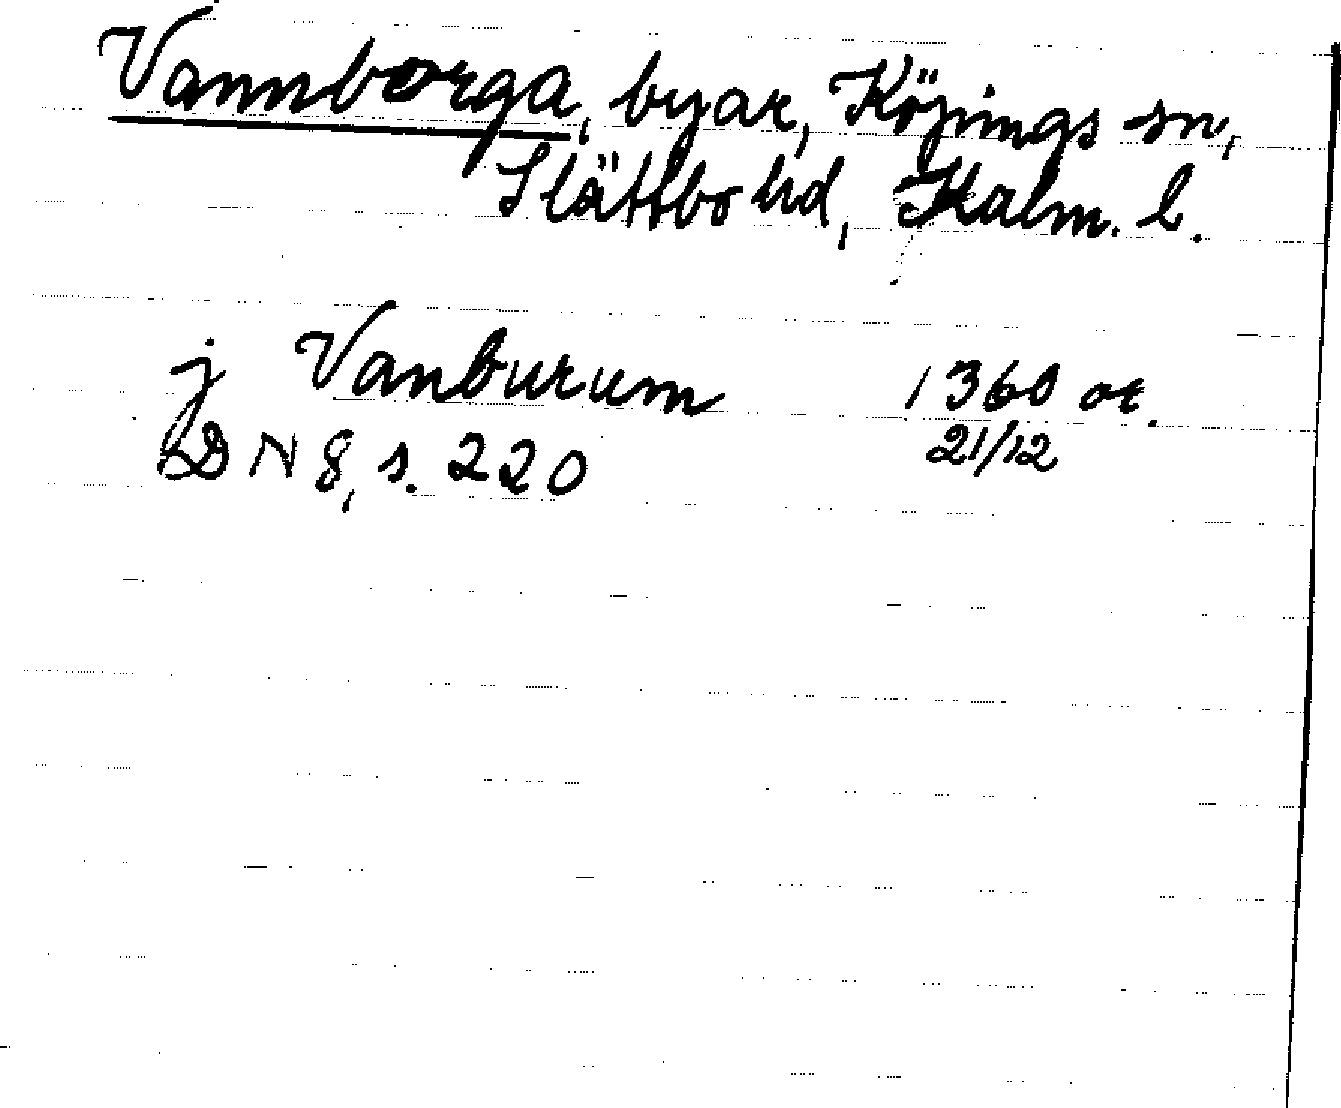 Vannborga, byar, Köpings sn,
Slättbo hd, Kalm. l.
j Vanburum 1360 or.
DN 8, s. 220 21/12